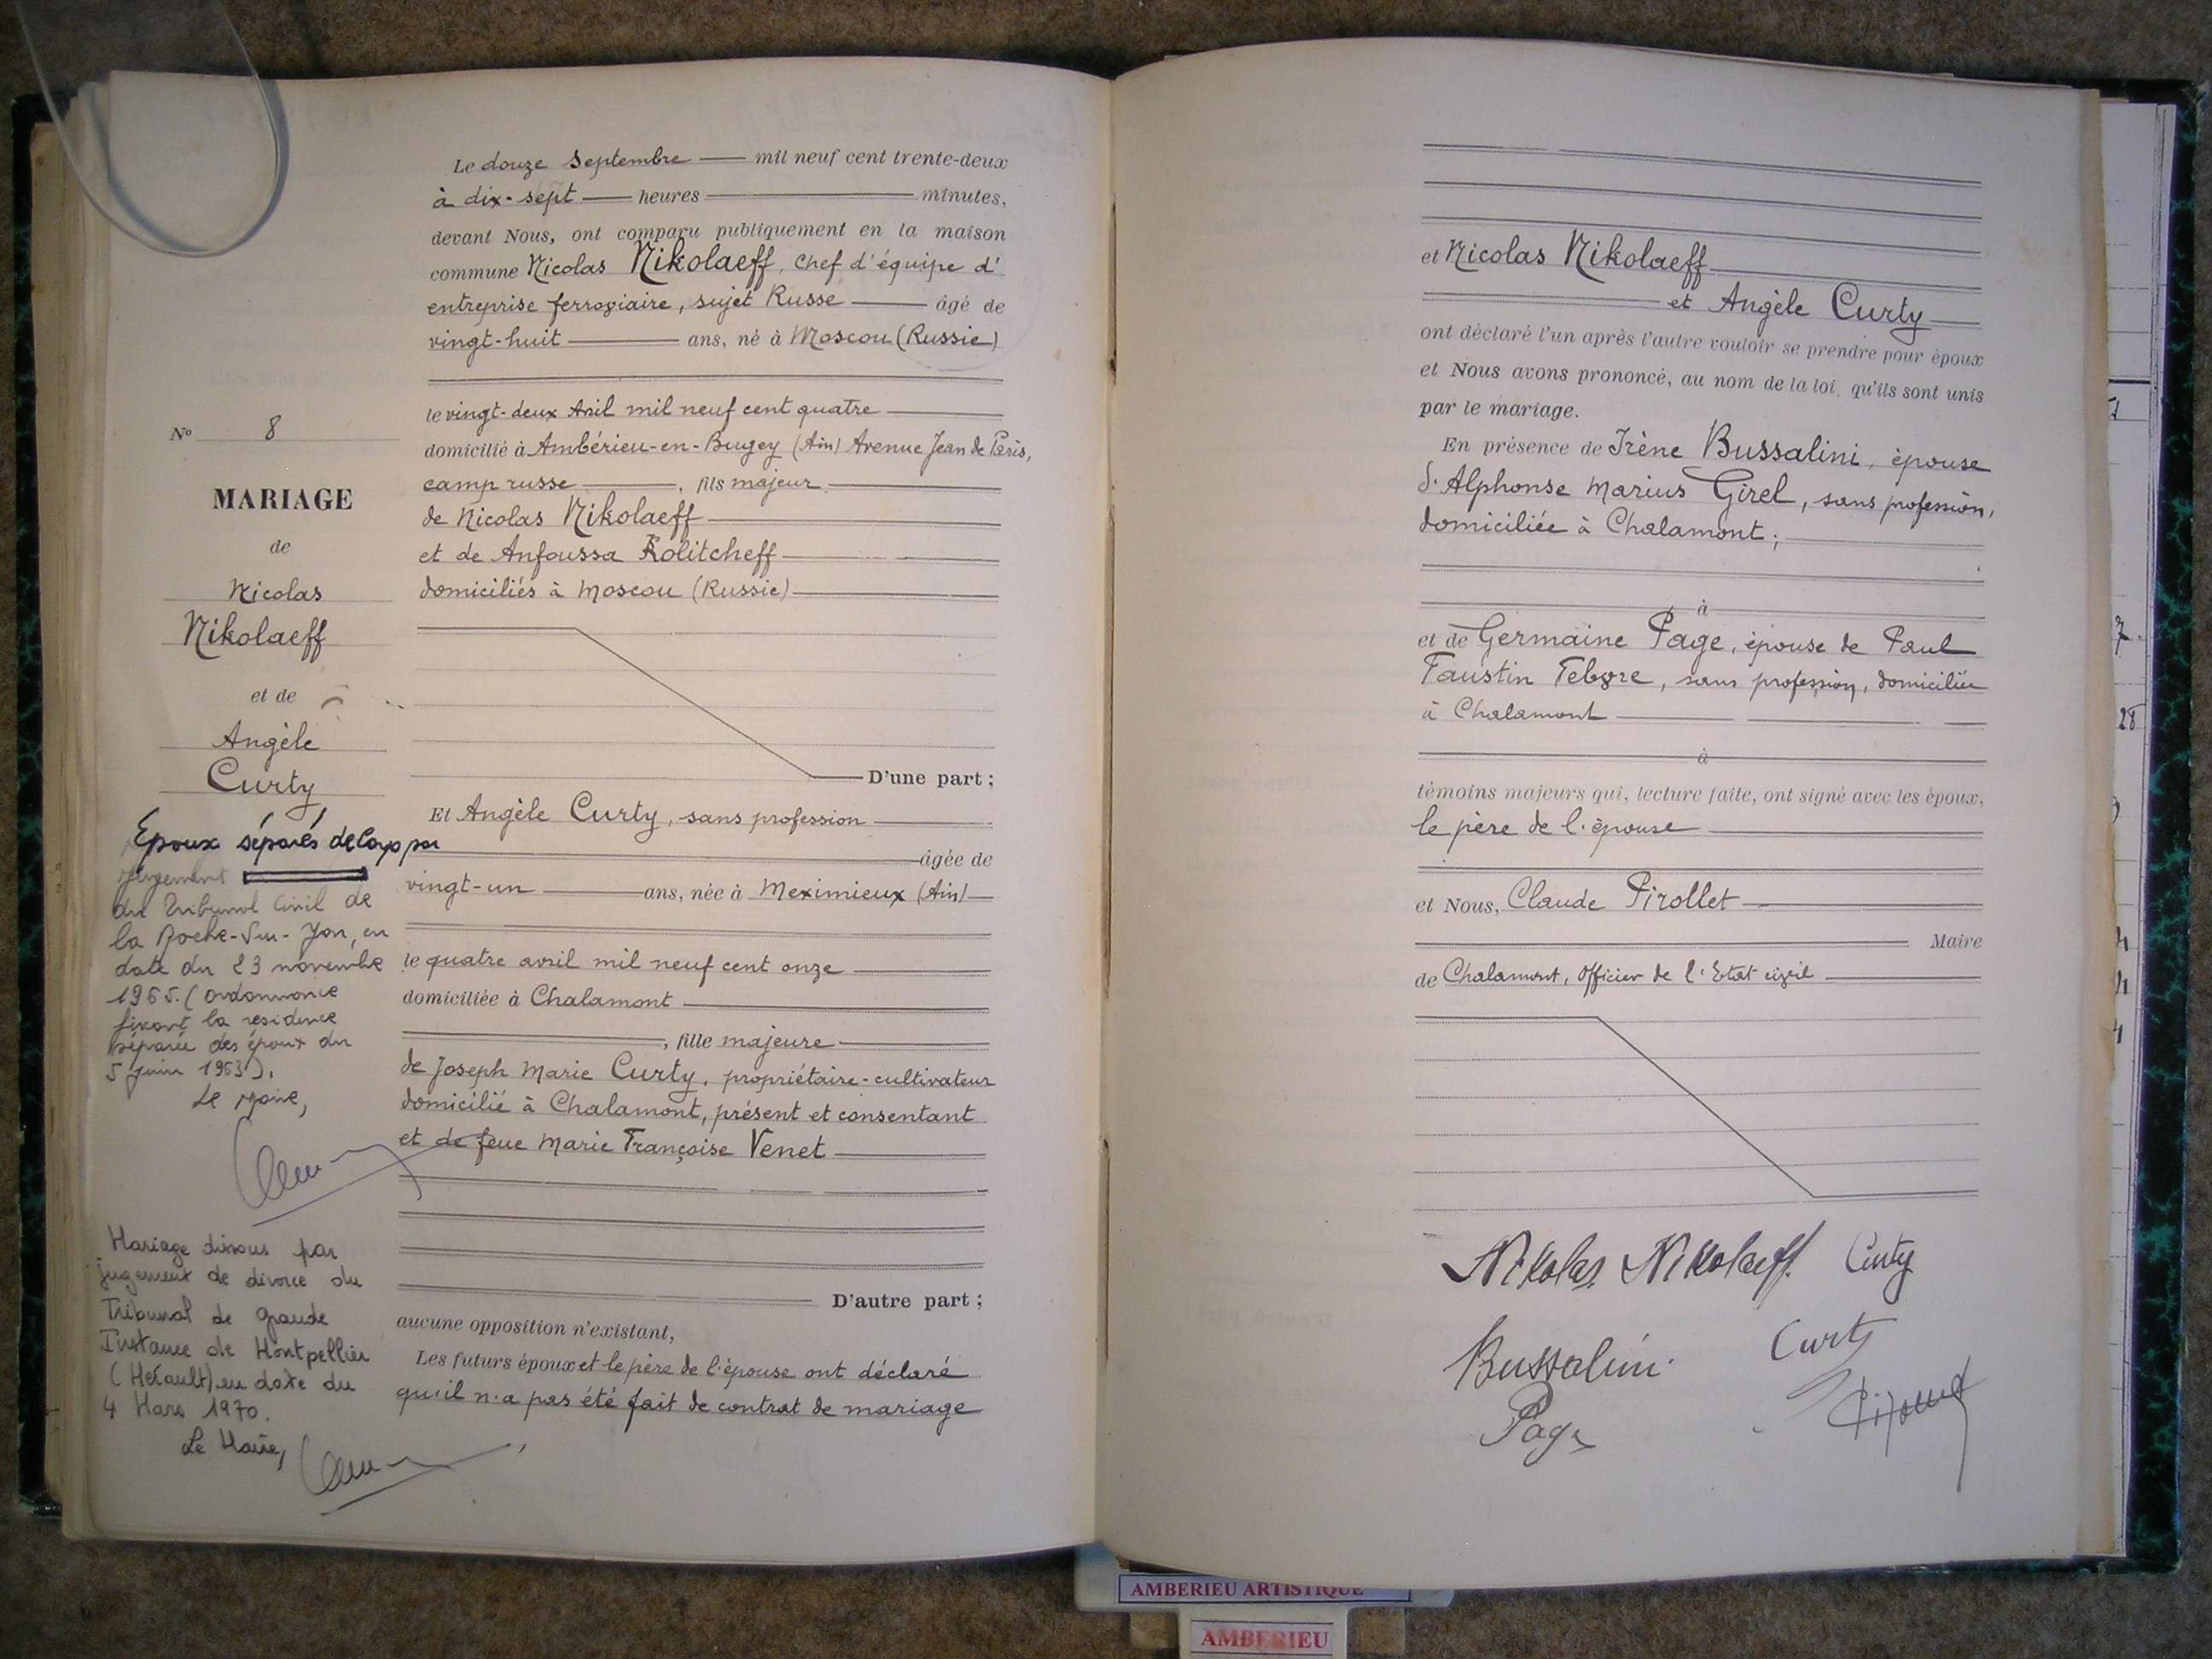 Le douze Septembre mil neuf cent trente-deux
à dix-sept heures minutes,
devant Nous, ont comparu publiquement en la maison
commune Nicolas Nikolaeff, Chef d'équipe d'
entreprise ferrogiaire, sujet Russe âgé de
vingt-huit ans, né à Moscou (Russie)
le vingt-deux Avril mil neuf cent quatre
domicilié à Ambérieu-en-Bugey (Ain) Avenue Jean de Paris,
camp russe, fils majeur
de Nicolas Nikolaeff
et de Anfoussa Kolitcheff
domiciliés à Moscou (Russie)
D'une part;
Et Angèle Curty, sans profession
âgée de
vingt-un ans, née à Meximieux (Ain)
le quatre avril mil neuf cent onze
domiciliée à Chalamont
, fille majeure
de Joseph Marie Curty, propriétaire-cultivateur
domicilié à Chalamont, présent et consentant
et de feue Marie Françoise Venet
D'autre part;
aucune opposition n'existant,
Les futurs époux et le père de l'épouse ont déclaré
qu'il n'a pas été fait de contrat de mariage
No 8
MARIAGE
de
Nicolas
Nikolaeff
et de
Angèle
Curty
Epoux séparés de Corps par
jugement
du Tribunal Civil de
la Roche-Sur-Yon, en
date du 23 novembre
1965. (ordonnance
fixant la résidence
séparée des époux du
5 juin 1963).
Le Maire,
Mariage dissous par
jugement de divorce du
Tribunal de grande
Instance de Montpellier
(Hérault) en date du
4 Mars 1970.
Le Maire,
et Nicolas Nikolaeff
et Angèle Curty
ont déclaré l'un après l'autre vouloir se prendre pour époux
et Nous avons prononcé, au nom de la loi, qu'ils sont unis
par le mariage.
En présence de Irène Bussalini, épouse
d'Alphonse Marius Girel, sans profession,
domiciliée à Chalamont;
à
et de Germaine Page, épouse de Paul
Faustin, sans profession, domiciliée
à Chalamont
à
témoins majeurs qui, lecture faite, ont signé avec les époux,
le père de l'épouse
et Nous, Claude Pirollet
Maire
de Chalamont, Officier de l'Etat civil
Nikolas Nikolaeff. Curty
Bussalini Curty
Page
AMBERIEU ARTISTIQUE
AMBERIEU